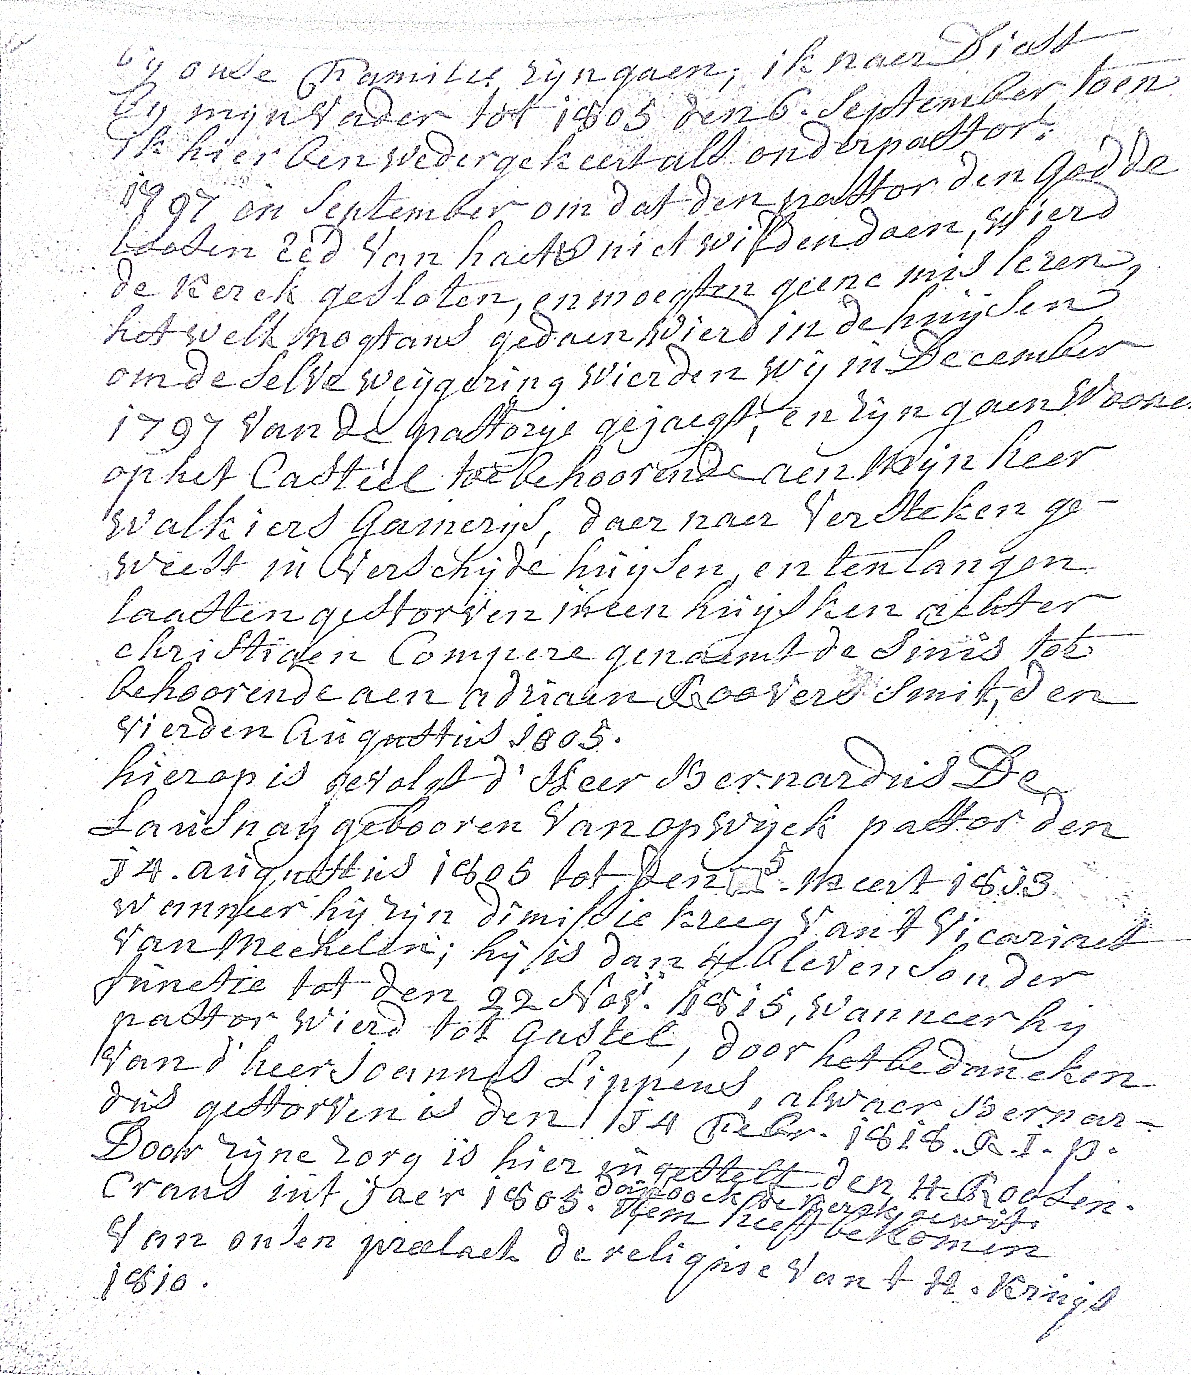 by onse Familie zijn gaen, ik naer Diest
by mijn Vader tot 1805 den 6. September toen
ik hier ben wedergekeert als onderpastor.
1797 in September om dat den pastor den godde
loosen eed van haet niet wilden doen, wierd
de Kerck gesloten, en moegten geene mis lezen,
het welk nogtans gedaen wierd in de huijsen
om de selve weijgering wierden wij in December
1797 van de pastorije gejaegt, en zijn gaen Woone
op het Casteel toebehoorende aen Mijn heer
Walkiers Gamerijs, daer naer Versteken ge-
weest in Verschijde huijsen, en ten langen
laasten gestorven in een huijsken achter
christiaen Compere genaemt de Smis toe
behoorende aen adriaen Roovers Smit, den
vierden Augustus 1805.
hier op is gevolgt d'Heer Bernardus De
Launay gebooren van opwijck pastor den
14. augustus 1805 tot den 5. Meert 1813
wanneer hij zijn dimissie kreeg van t Vicariaet
van Mechelen; hij is dan gebleven sonder
functie tot den 22 Nov. 1815, wanneer hij
pastor wierd tot Gastel, door het bedancken
van d'heer Joannes Lippens, alwaer Bernar-
dus gestorven is den 14 Febr. 1818. R.I.p.
Door zijne zorg is hier ingestelt den H. Roosen-
Crans int Jaer 1805. dan oock de kerck gewit.
Item heeft bekomen
van onsen prelaet de religuie van t H. Kruijs
1810.